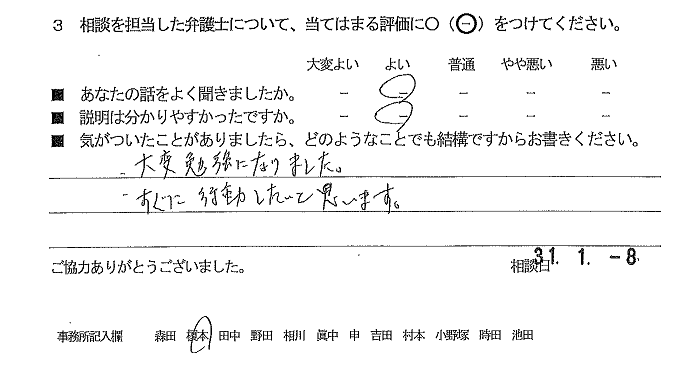 3 相談を担当した弁護士について、当てはまる評価に○（㊀）をつけてください。
大変よい よい 普通 やや悪い 悪い
■ あなたの話をよく聞きましたか。 － － － － －
■ 説明は分かりやすかったですか。 － － － － －
■ 気がついたことがありましたら、どのようなことでも結構ですからお書きください。
・大変勉強になりました。
・すぐに行動したいと思います。
ご協力ありがとうございました。 相談日 31. 1. -8
事務所記入欄 森田 榎本 田中 野田 相川 眞中 申 吉田 村本 小野塚 時田 池田